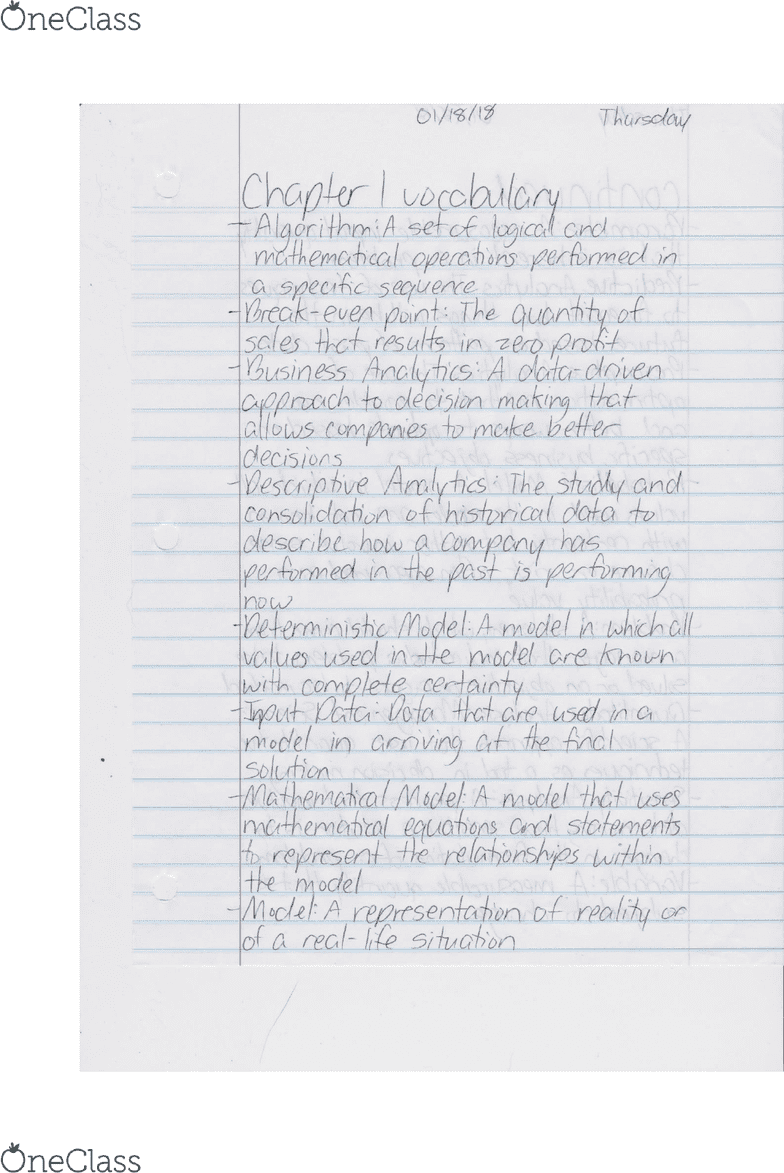 OneClass
01/18/18 Thursday
Chapter 1 vocabulary
- Algorithm: A set of logical and
mathematical operations performed in
a specific sequence
- Break-even point: The quantity of
sales that results in zero profit
- Business Analytics: A data-driven
approach to decision making that
allows companies to make better
decisions
- Descriptive Analytics: The study and
consolidation of historical data to
describe how a company has
performed in the past is performing
now
- Deterministic Model: A model in which all
values used in the model are known
with complete certainty
- Input Data: Data that are used in a
model in arriving at the final
solution
- Mathematical Model: A model that uses
mathematical equations and statements
to represent the relationships within
the model
- Model: A representation of reality or
of a real-life situation
OneClass